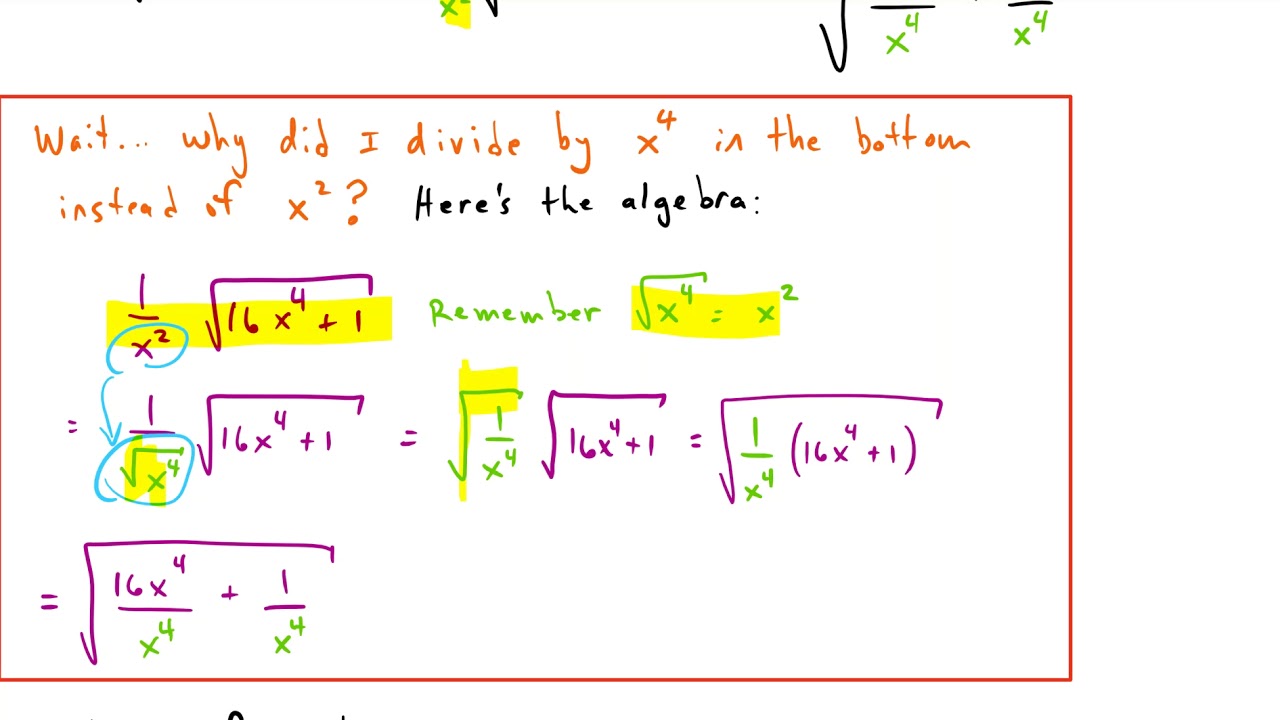 x⁴ x⁴
Wait... why did I divide by x⁴ in the bottom
instead of x²? Here's the algebra:
1/x² √(16x⁴ + 1) Remember √(x⁴) = x²
= 1/√(x⁴) √(16x⁴ + 1) = √(1/x⁴) √(16x⁴ + 1) = √(1/x⁴ (16x⁴ + 1))
= √(16x⁴/x⁴ + 1/x⁴)